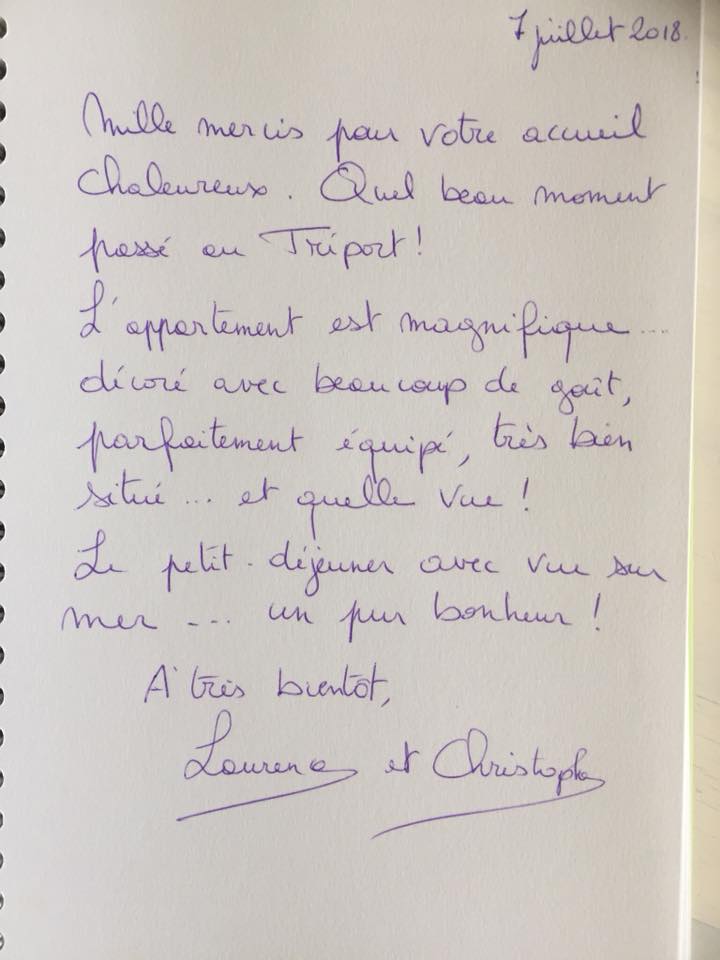 7 juillet 2018.
Mille mercis pour votre accueil
chaleureux. Quel beau moment
passé au Tréport !
L'appartement est magnifique ....
décoré avec beaucoup de goût,
parfaitement équipé, très bien
situé ... et quelle vue !
Le petit-déjeuner avec vue sur
mer .... un pur bonheur !
A très bientôt,
Laurence et Christophe